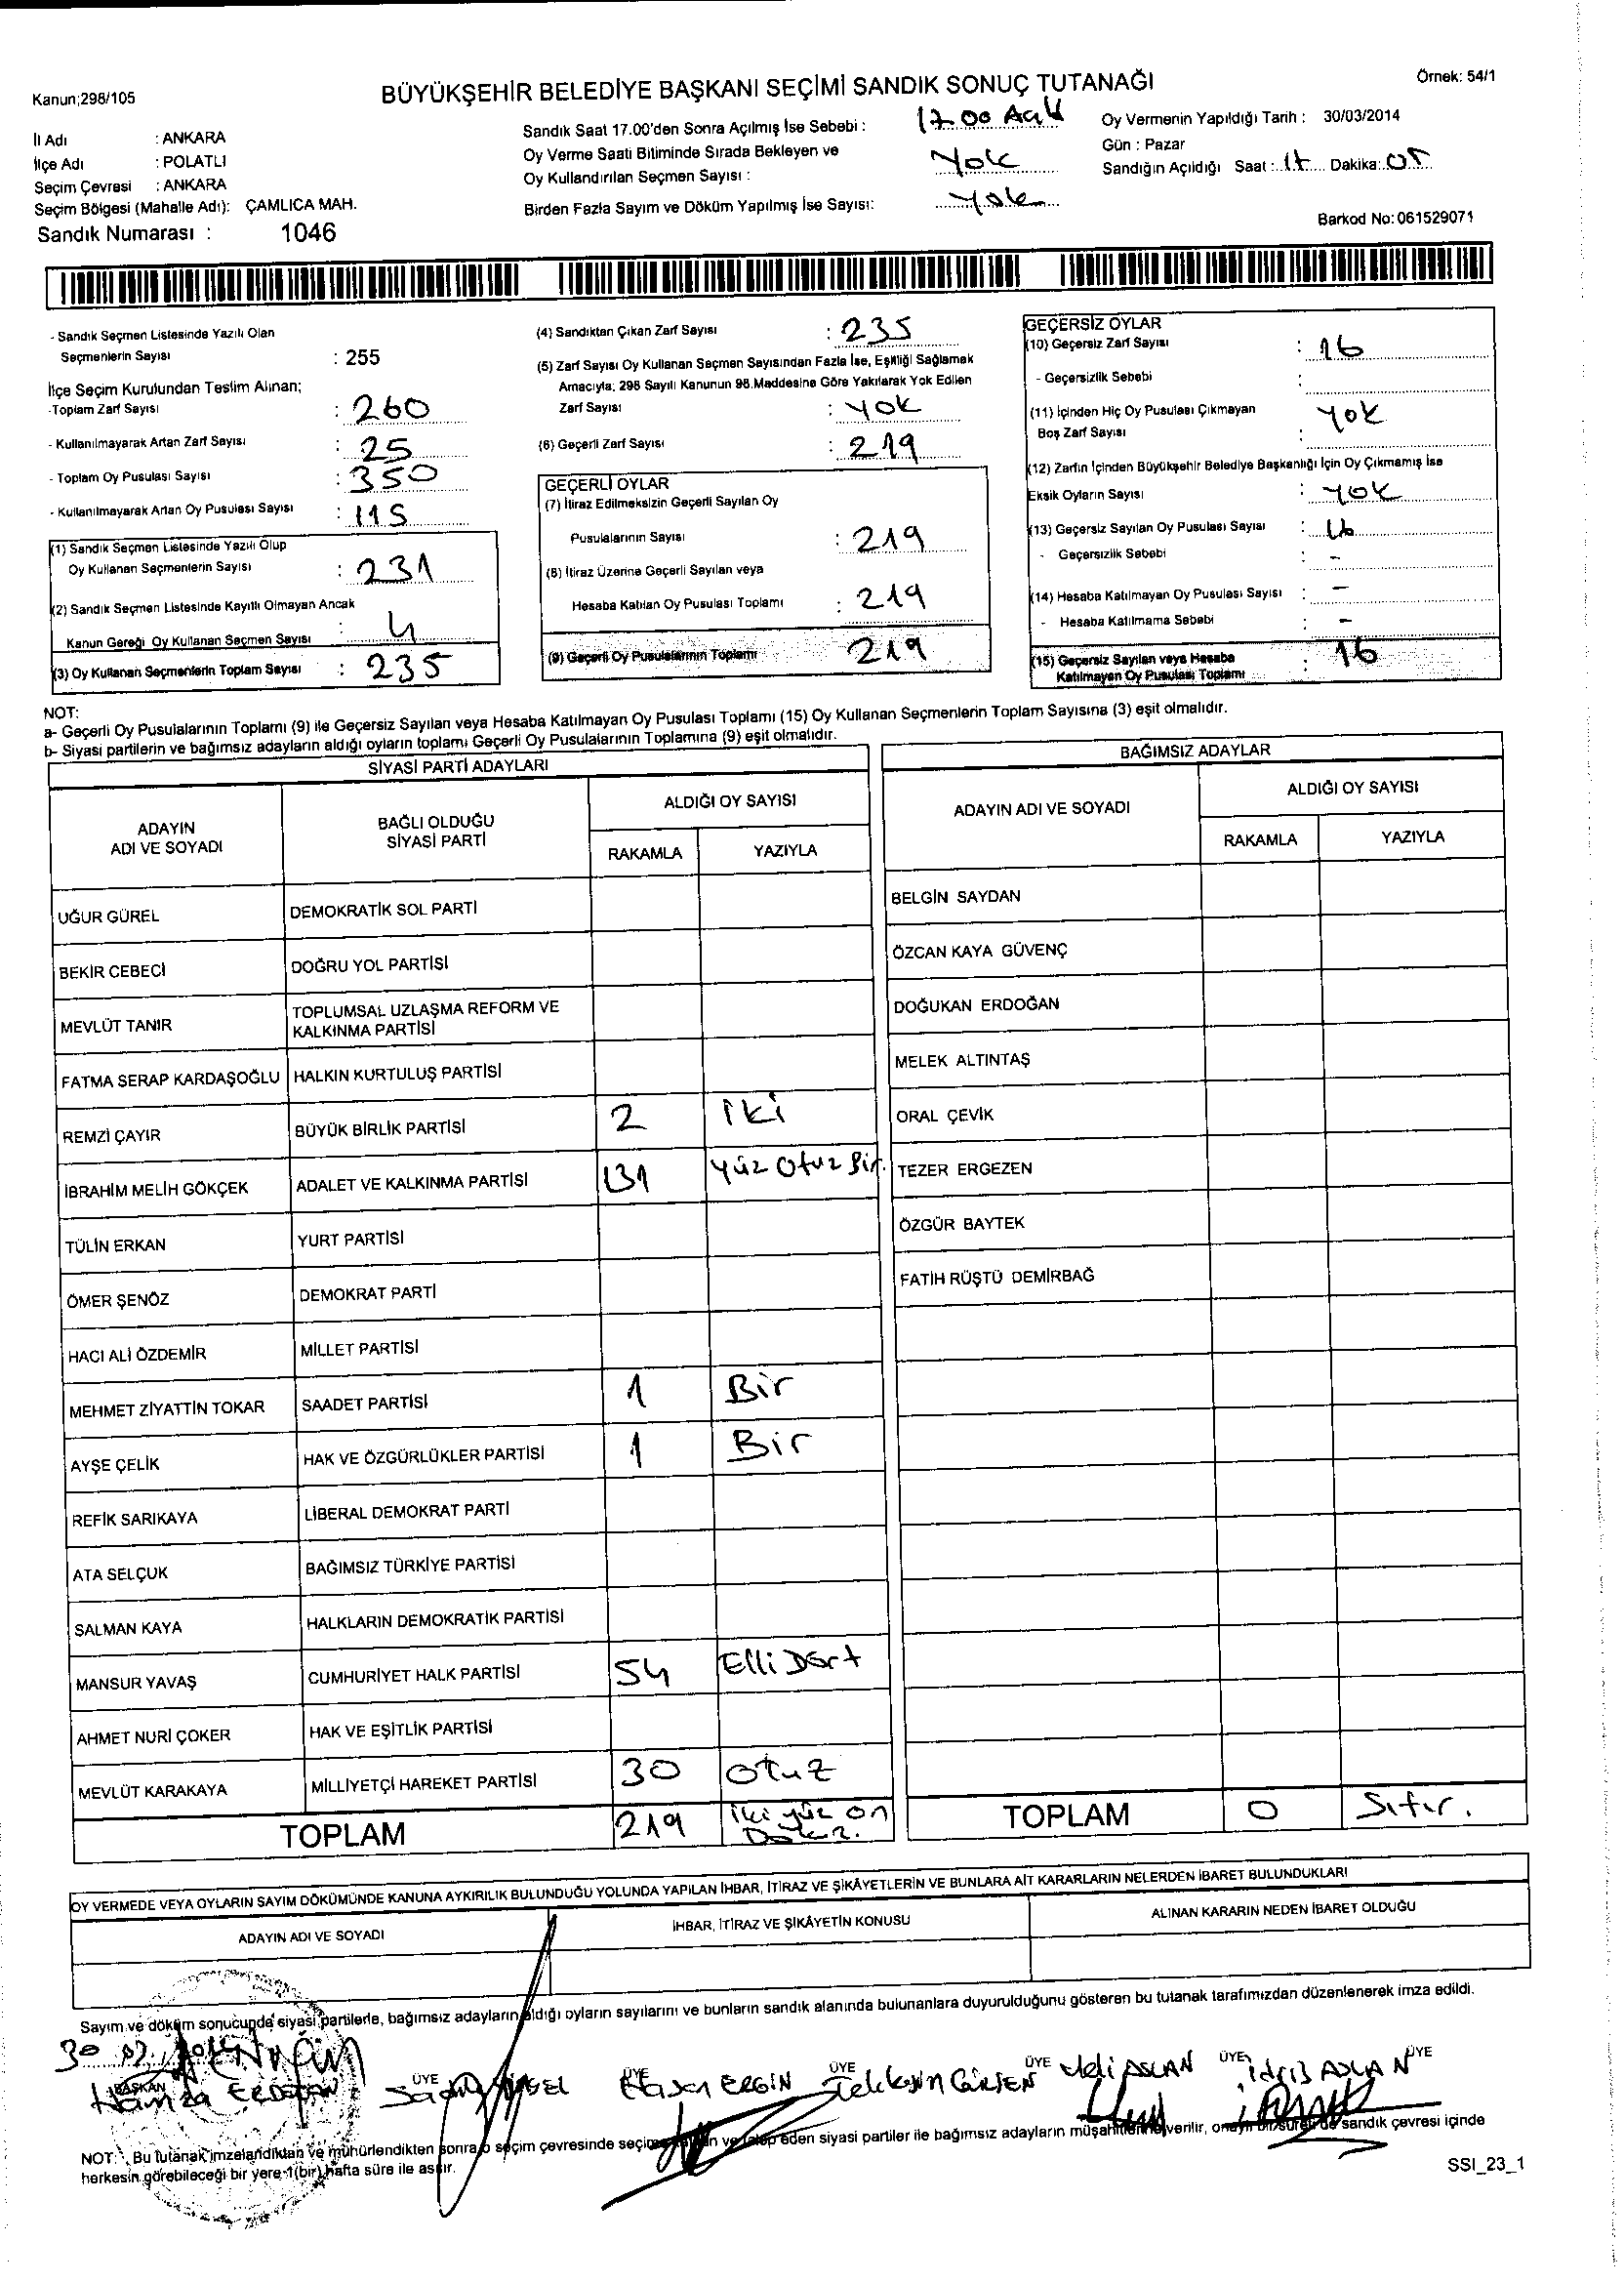 Kanun;298/105
BÜYÜKŞEHİR BELEDİYE BAŞKANI SEÇİMİ SANDIK SONUÇ TUTANAĞI
Örnek: 54/1
İl Adı : ANKARA
İlçe Adı : POLATLI
Seçim Çevresi : ANKARA
Seçim Bölgesi (Mahalle Adı): ÇAMLICA MAH.
Sandık Numarası : 1046
Sandık Saat 17.00'den Sonra Açılmış İse Sebebi : 17.00 Açık
Oy Verme Saati Bitiminde Sırada Bekleyen ve
Oy Kullandırılan Seçmen Sayısı : Yok
Birden Fazla Sayım ve Döküm Yapılmış İse Sayısı: Yok
Oy Vermenin Yapıldığı Tarih : 30/03/2014
Gün : Pazar
Sandığın Açıldığı Saat : 17 Dakika: 05
Barkod No: 061529071
- Sandık Seçmen Listesinde Yazılı Olan
Seçmenlerin Sayısı : 255
İlçe Seçim Kurulundan Teslim Alınan;
-Toplam Zarf Sayısı : 260
- Kullanılmayarak Artan Zarf Sayısı : 25
- Toplam Oy Pusulası Sayısı : 350
- Kullanılmayarak Artan Oy Pusulası Sayısı : 115
(1) Sandık Seçmen Listesinde Yazılı Olup
Oy Kullanan Seçmenlerin Sayısı : 231
(2) Sandık Seçmen Listesinde Kayıtlı Olmayan Ancak
Kanun Gereği Oy Kullanan Seçmen Sayısı : 4
(3) Oy Kullanan Seçmenlerin Toplam Sayısı : 235
(4) Sandıktan Çıkan Zarf Sayısı : 235
(5) Zarf Sayısı Oy Kullanan Seçmen Sayısından Fazla İse, Eşitliği Sağlamak
Amacıyla; 298 Sayılı Kanunun 98.Maddesine Göre Yakılarak Yok Edilen
Zarf Sayısı : YOK
(6) Geçerli Zarf Sayısı : 219
GEÇERLİ OYLAR
(7) İtiraz Edilmeksizin Geçerli Sayılan Oy
Pusulalarının Sayısı : 219
(8) İtiraz Üzerine Geçerli Sayılan veya
Hesaba Katılan Oy Pusulası Toplamı : 219
(9) Geçerli Oy Pusulalarının Toplamı 219
GEÇERSİZ OYLAR
(10) Geçersiz Zarf Sayısı : 16
- Geçersizlik Sebebi :
(11) İçinden Hiç Oy Pusulası Çıkmayan
Boş Zarf Sayısı : YOK
(12) Zarfın İçinden Büyükşehir Belediye Başkanlığı İçin Oy Çıkmamış İse
Eksik Oyların Sayısı : YOK
(13) Geçersiz Sayılan Oy Pusulası Sayısı : 16
- Geçersizlik Sebebi : -
(14) Hesaba Katılmayan Oy Pusulası Sayısı : -
- Hesaba Katılmama Sebebi : -
(15) Geçersiz Sayılan veya Hesaba
Katılmayan Oy Pusulası Toplamı : 16
NOT:
a- Geçerli Oy Pusulalarının Toplamı (9) ile Geçersiz Sayılan veya Hesaba Katılmayan Oy Pusulası Toplamı (15) Oy Kullanan Seçmenlerin Toplam Sayısına (3) eşit olmalıdır.
b- Siyasi partilerin ve bağımsız adayların aldığı oyların toplamı Geçerli Oy Pusulalarının Toplamına (9) eşit olmalıdır.
SİYASİ PARTİ ADAYLARI
ADAYIN ADI VE SOYADI BAĞLI OLDUĞU SİYASİ PARTİ ALDIĞI OY SAYISI
RAKAMLA YAZIYLA
UĞUR GÜREL DEMOKRATİK SOL PARTİ
BEKİR CEBECİ DOĞRU YOL PARTİSİ
MEVLÜT TANIR TOPLUMSAL UZLAŞMA REFORM VE KALKINMA PARTİSİ
FATMA SERAP KARDAŞOĞLU HALKIN KURTULUŞ PARTİSİ
REMZİ ÇAYIR BÜYÜK BİRLİK PARTİSİ 2 iki
İBRAHİM MELİH GÖKÇEK ADALET VE KALKINMA PARTİSİ 131 Yüz Otuz Bir.
TÜLİN ERKAN YURT PARTİSİ
ÖMER ŞENÖZ DEMOKRAT PARTİ
HACI ALİ ÖZDEMİR MİLLET PARTİSİ
MEHMET ZİYATTİN TOKAR SAADET PARTİSİ 1 Bir
AYŞE ÇELİK HAK VE ÖZGÜRLÜKLER PARTİSİ 1 Bir
REFİK SARIKAYA LİBERAL DEMOKRAT PARTİ
ATA SELÇUK BAĞIMSIZ TÜRKİYE PARTİSİ
SALMAN KAYA HALKLARIN DEMOKRATİK PARTİSİ
MANSUR YAVAŞ CUMHURİYET HALK PARTİSİ 54 Elli Dört
AHMET NURİ ÇOKER HAK VE EŞİTLİK PARTİSİ
MEVLÜT KARAKAYA MİLLİYETÇİ HAREKET PARTİSİ 30 Otuz
TOPLAM 219 iki yüz on Dokuz.
BAĞIMSIZ ADAYLAR
ADAYIN ADI VE SOYADI ALDIĞI OY SAYISI
RAKAMLA YAZIYLA
BELGİN SAYDAN
ÖZCAN KAYA GÜVENÇ
DOĞUKAN ERDOĞAN
MELEK ALTINTAŞ
ORAL ÇEVİK
TEZER ERGEZEN
ÖZGÜR BAYTEK
FATİH RÜŞTÜ DEMİRBAĞ
TOPLAM 0 Sıfır.
OY VERMEDE VEYA OYLARIN SAYIM DÖKÜMÜNDE KANUNA AYKIRILIK BULUNDUĞU YOLUNDA YAPILAN İHBAR, İTİRAZ VE ŞİKÂYETLERİN VE BUNLARA AİT KARARLARIN NELERDEN İBARET BULUNDUKLARI
ADAYIN ADI VE SOYADI İHBAR, İTİRAZ VE ŞİKÂYETİN KONUSU ALINAN KARARIN NEDEN İBARET OLDUĞU
Sayım ve döküm sonucunda siyasi partilerle, bağımsız adayların aldığı oyların sayılarını ve bunların sandık alanında bulunanlara duyurulduğunu gösteren bu tutanak tarafımızdan düzenlenerek imza edildi.
BAŞKAN ÜYE ÜYE ÜYE ÜYE ÜYE ÜYE
Hamza ERGİN ASLAN İdris ASLAN
NOT: Bu tutanak imzalandıktan ve mühürlendikten sonra o seçim çevresinde seçime eden siyasi partiler ile bağımsız adayların müşahitlerine verilir, sandık çevresi içinde
herkesin görebileceği bir yere 1(bir) hafta süre ile asılır.
SSI_23_1